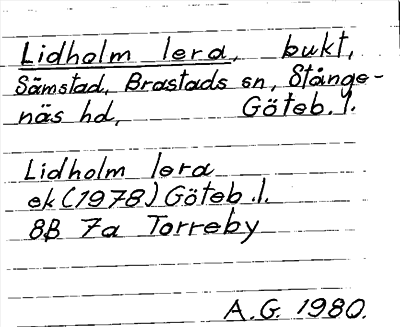 Lidholm lera, bukt,
Sämstad, Brastads sn, Stånge-
näs hd, Göteb. l.
Lidholm lera
ek (1978) Göteb. l.
8B 7a Torreby
A.G. 1980.